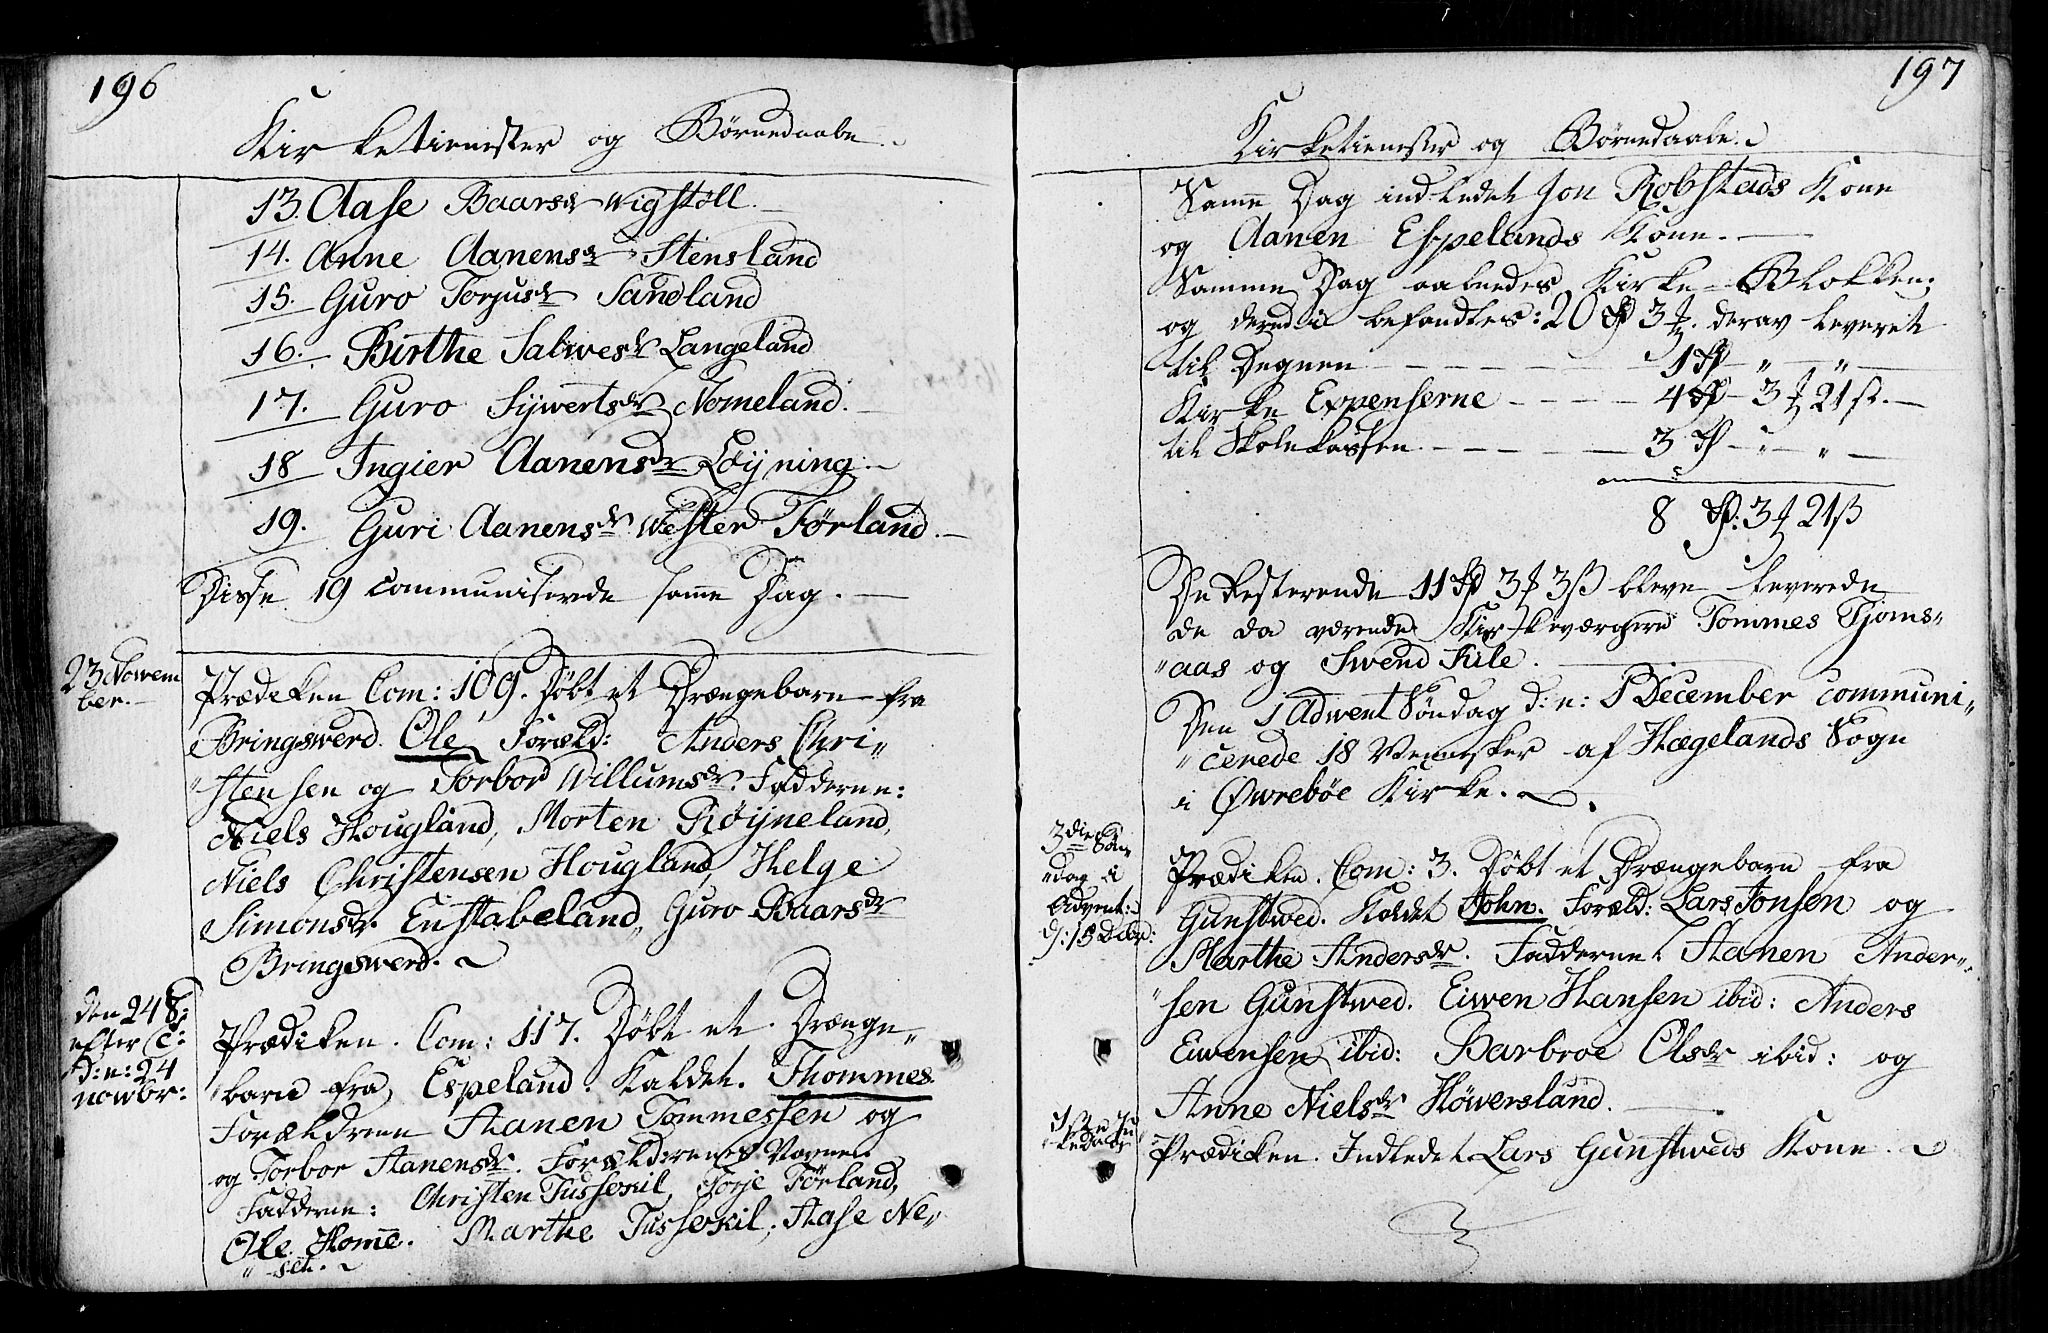 196
Kirketienester og Børnedaabe.
13. Aase Baarsdr Wigstøll.
14. Anne Aanensdr Stensland
15. Guro Torjusdr Sandland
16. Birthe Salwesdr Langeland
17. Guro Sijwertsdr Nomeland.
18 Ingier Aanensdr Løijning.
19. Guri Aanensdr Wester Førland.
Disse 19 communiserede samme Dag.
23 Nowem
ber.
Prædeken Com: 109. Døbt et Drængebarn fra
Bringswerd. Ole, Foræld: Anders Chri„
„stensen og Torbor Willumsdr. Fadderne:
Niels Hougland, Morten Røijneland,
Niels Christensen Hougland, Helge
Simonsdr. Enstabeland, Guro Baarsdr
Bringswerd.
den 24 S:
efter
d: n: 24
nowbr:
Prædiken. Com: 117. Døbt et Drænge„
„barn fra Espeland. Kaldet. Thommes.
Forældrene Aanen Tommessen og
og Torbor Aanensdr. Forældrenes Navne.
Fadderne: Christen Tusseskil, Torje Førland,
Ole Home. Marthe Tusseskil, Aase Ne„
„set.
197
Kirketienester og Børnedaabe.
Samme Dag indledet Jon Robstads Kone
og Aanen Espelands Kone.
Samme Dag aabnedes Kirke-Blokken;
og derudi befandtes: 20 rd 3 mk. derav leveret
til Degnen - - - - - 1 rd „ - „ -
Kirke Expenserne - - - - 4 rd - 3 mk 21 ß. -
til Skolekassen - - - - 3 rd - „ - „ -
8 rd: 3 mk 21 ß
De Resterende 11 rd 3 mk 3 ß bleve leverede
de da værende Kirkeværgere Tommes Tjoms„
„aas og Swend Kile.
Den 1 Adwent Søndag d: n: 1 December communi„
„cerede 18 Mennisker af Hægelands Sogn
i Øwrebøe Kirke.
3die Søn„
„dag i
Advent:
d: 15 Debr:
Prædiken. Com: 3. Døbt et Drængebarn fra
Gunstwed. Kaldet John. Foræld: Lars Jonsen og
Marthe Andersdr. Fadderne. Aanen Ander„
„sen Gunstwed. Eiwen Hansen ibid: Anders
Eiwensen ibid: Barbroe Olsdr ibid: og
Anne Nielsdr Høwersland.
1ste Ju
ledag
Prædiken. Indledet Lars Gunstweds Kone.